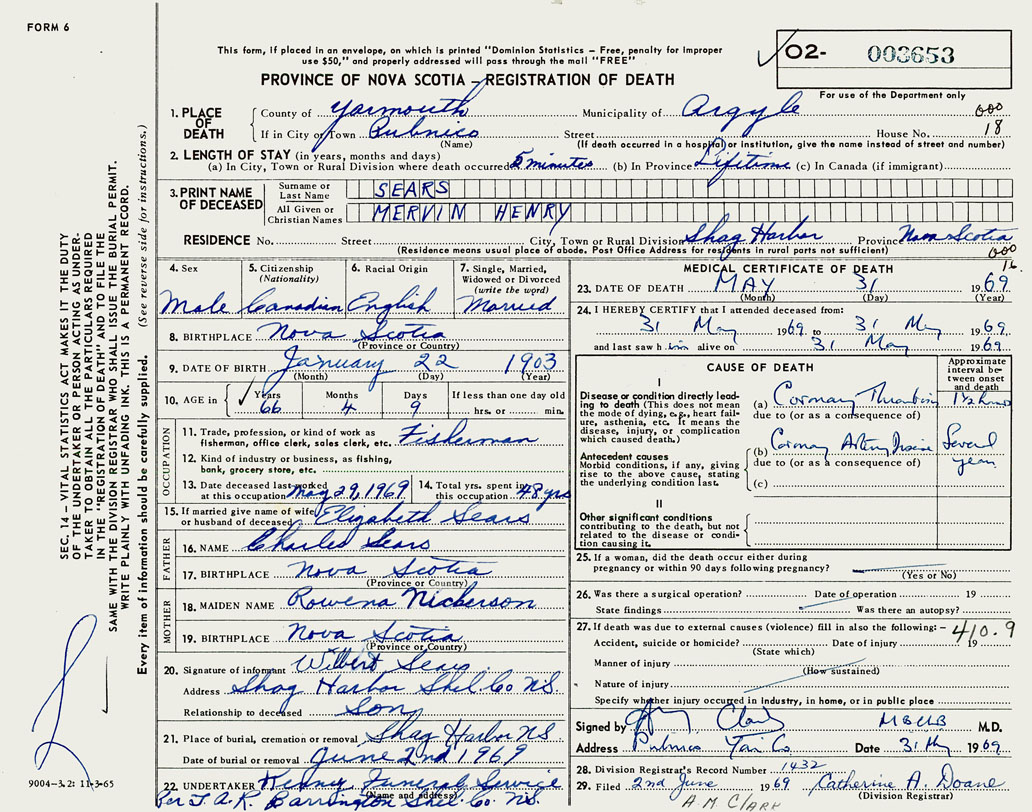 FORM 6
This form, if placed in an envelope, on which is printed "Dominion Statistics – Free, penalty for improper
use $50," and properly addressed will pass through the mail "FREE"
O2- 003653
For use of the Department only
PROVINCE OF NOVA SCOTIA – REGISTRATION OF DEATH
000
18
1. PLACE OF DEATH
County of Yarmouth Municipality of Argyle
If in City or Town Pubnico Street House No.
(Name) (If death occurred in a hospital or institution, give the name instead of street and number)
2. LENGTH OF STAY (in years, months and days)
(a) In City, Town or Rural Division where death occurred 5 minutes (b) In Province Lifetime (c) In Canada (if immigrant)
3. PRINT NAME OF DECEASED
Surname or Last Name SEARS
All Given or Christian Names MERVIN HENRY
RESIDENCE No. Street City, Town or Rural Division Shag Harbor Province Nova Scotia
(Residence means usual place of abode. Post Office Address for residents in rural parts not sufficient)
000
4. Sex
Male
5. Citizenship
(Nationality)
Canadian
6. Racial Origin
English
7. Single, Married,
Widowed or Divorced
(write the word)
Married
8. BIRTHPLACE Nova Scotia
(Province or Country)
9. DATE OF BIRTH January 22 1903
(Month) (Day) (Year)
10. AGE in Years Months Days If less than one day old
66 4 9 hrs. or min.
OCCUPATION
11. Trade, profession, or kind of work as
fisherman, office clerk, sales clerk, etc. Fisherman
12. Kind of industry or business, as fishing,
bank, grocery store, etc.
13. Date deceased last worked
at this occupation May 29, 1969
14. Total yrs. spent in
this occupation 48 yrs
15. If married give name of wife
or husband of deceased Elizabeth Sears
FATHER
16. NAME Charles Sears
17. BIRTHPLACE Nova Scotia
(Province or Country)
MOTHER
18. MAIDEN NAME Rowena Nickerson
19. BIRTHPLACE Nova Scotia
(Province or Country)
20. Signature of informant Wilbert Sears
Address Shag Harbor Shel. Co N.S.
Relationship to deceased Son
21. Place of burial, cremation or removal Shag Harbor NS
Date of burial or removal June 2nd 1969
22. UNDERTAKER Kenney Funeral Service
(Name and address)
Per J. A. K. Barrington Shel. Co. N.S.
MEDICAL CERTIFICATE OF DEATH
23. DATE OF DEATH MAY 31 1969
(Month) (Day) (Year)
24. I HEREBY CERTIFY that I attended deceased from:
31 May 1969 to 31 May 1969
and last saw him alive on 31 May 1969
CAUSE OF DEATH
Approximate
interval be-
tween onset
and death
I
Disease or condition directly lead-
ing to death (This does not mean
the mode of dying, e.g., heart fail-
ure, asthenia, etc. It means the
disease, injury, or complication
which caused death.)
(a) Coronary Thrombosis 1½ hours
due to (or as a consequence of)
Antecedent causes
Morbid conditions, if any, giving
rise to the above cause, stating
the underlying condition last.
(b) Coronary Artery Disease Several years
due to (or as a consequence of)
(c)
II
Other significant conditions
contributing to the death, but not
related to the disease or condi-
tion causing it.
25. If a woman, did the death occur either during
pregnancy or within 90 days following pregnancy?
(Yes or No)
26. Was there a surgical operation? Date of operation 19
State findings Was there an autopsy?
27. If death was due to external causes (violence) fill in also the following: –
410.9
Accident, suicide or homicide? Date of injury 19
(State which)
Manner of injury
(How sustained)
Nature of injury
Specify whether injury occurred in Industry, in home, or in public place
Signed by Clark M.D.
Address Pubnico Yar. Co. Date 31 My 1969
28. Division Registrar's Record Number 1432
29. Filed 2nd June 1969 Catherine A. Doane
(Division Registrar)
A M CLARK
SEC. 14 – VITAL STATISTICS ACT MAKES IT THE DUTY
OF THE UNDERTAKER OR PERSON ACTING AS UNDER-
TAKER TO OBTAIN ALL THE PARTICULARS REQUIRED
IN THE "REGISTRATION OF DEATH" AND TO FILE THE
SAME WITH THE DIVISION REGISTRAR WHO SHALL ISSUE THE BURIAL PERMIT.
WRITE PLAINLY WITH UNFADING INK. THIS IS A PERMANENT RECORD.
Every item of information should be carefully supplied. (See reverse side for instructions.)
9004-3.2: 11-3-65